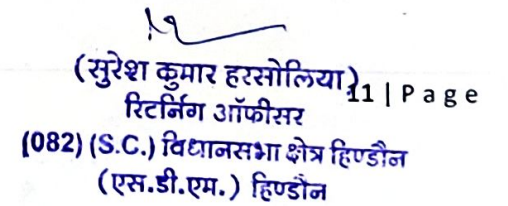 (सुरेश कुमार हरसोलिया)
11 | P a g e
रिटर्निग ऑफीसर
(082) (S.C.) विधानसभा क्षेत्र हिण्डौन
(एस.डी.एम.) हिण्डौन